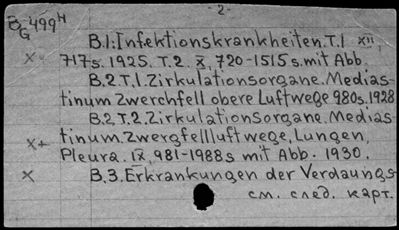 -2-
BG 499н
B.1: Infektionskrankheiten. T.1 XII,
x 717s. 1925. T.2. X, 720-1515 s. mit Abb.
B.2 T.1. Zirkulationsorgane. Medias-
tinum Zwerchfell obere Luftwege 980s. 1928
B.2 T.2. Zirkulationsorgane. Medias-
x+ tinum. Zwergfell luftwege, Lungen,
Pleura. IX, 981-1988s mit Abb. 1930.
x B.3. Erkrankungen der Verdaungs-
см. след. карт.